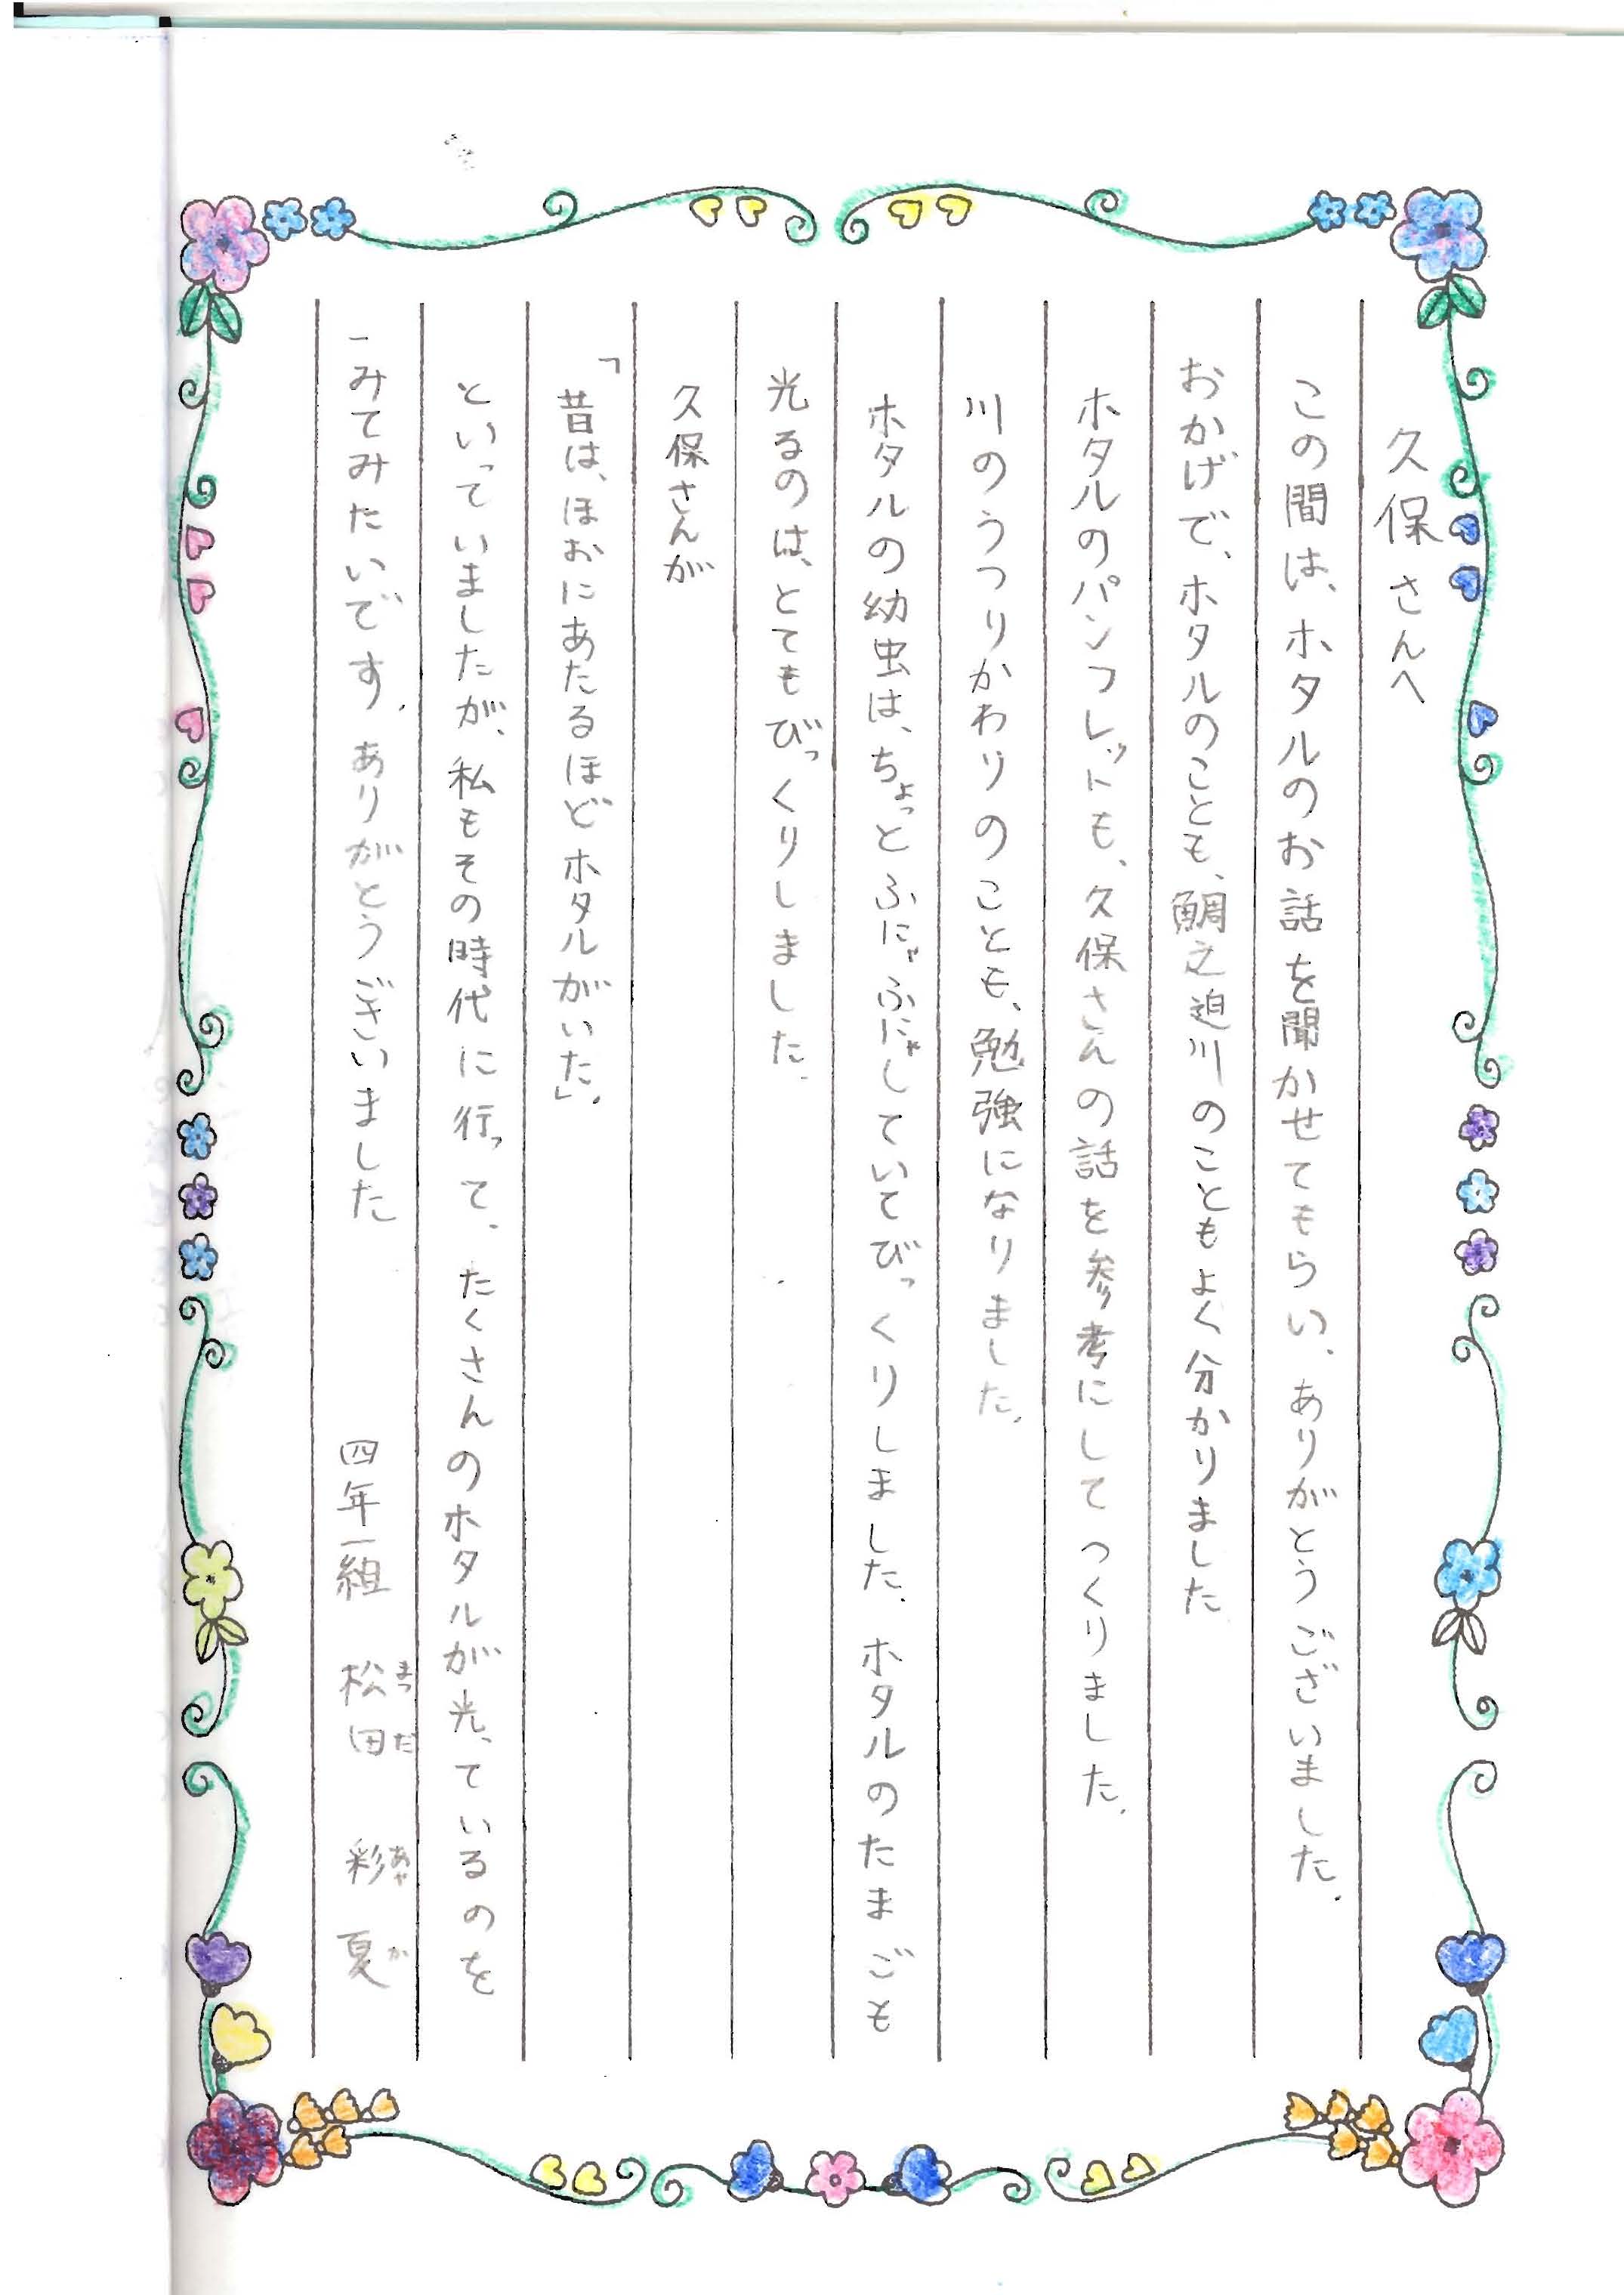 久保さんへ
この間は、ホタルのお話を聞かせてもらい、ありがとうございました。
おかげで、ホタルのことも、鯛之迫川のこともよく分かりました
ホタルのパンフレットも、久保さんの話を参考にしてつくりました。
川のうつりかわりのことも、勉強になりました。
ホタルの幼虫は、ちょっとふにゃふにゃしていてびっくりしました。ホタルのたまごも
光るのは、とてもびっくりしました。
久保さんが
「昔は、ほおにあたるほどホタルがいた」。
といっていましたが、私もその時代に行って、たくさんのホタルが光っているのを
みてみたいです。ありがとうございました
四年一組 松田 彩夏
まつだ あやか